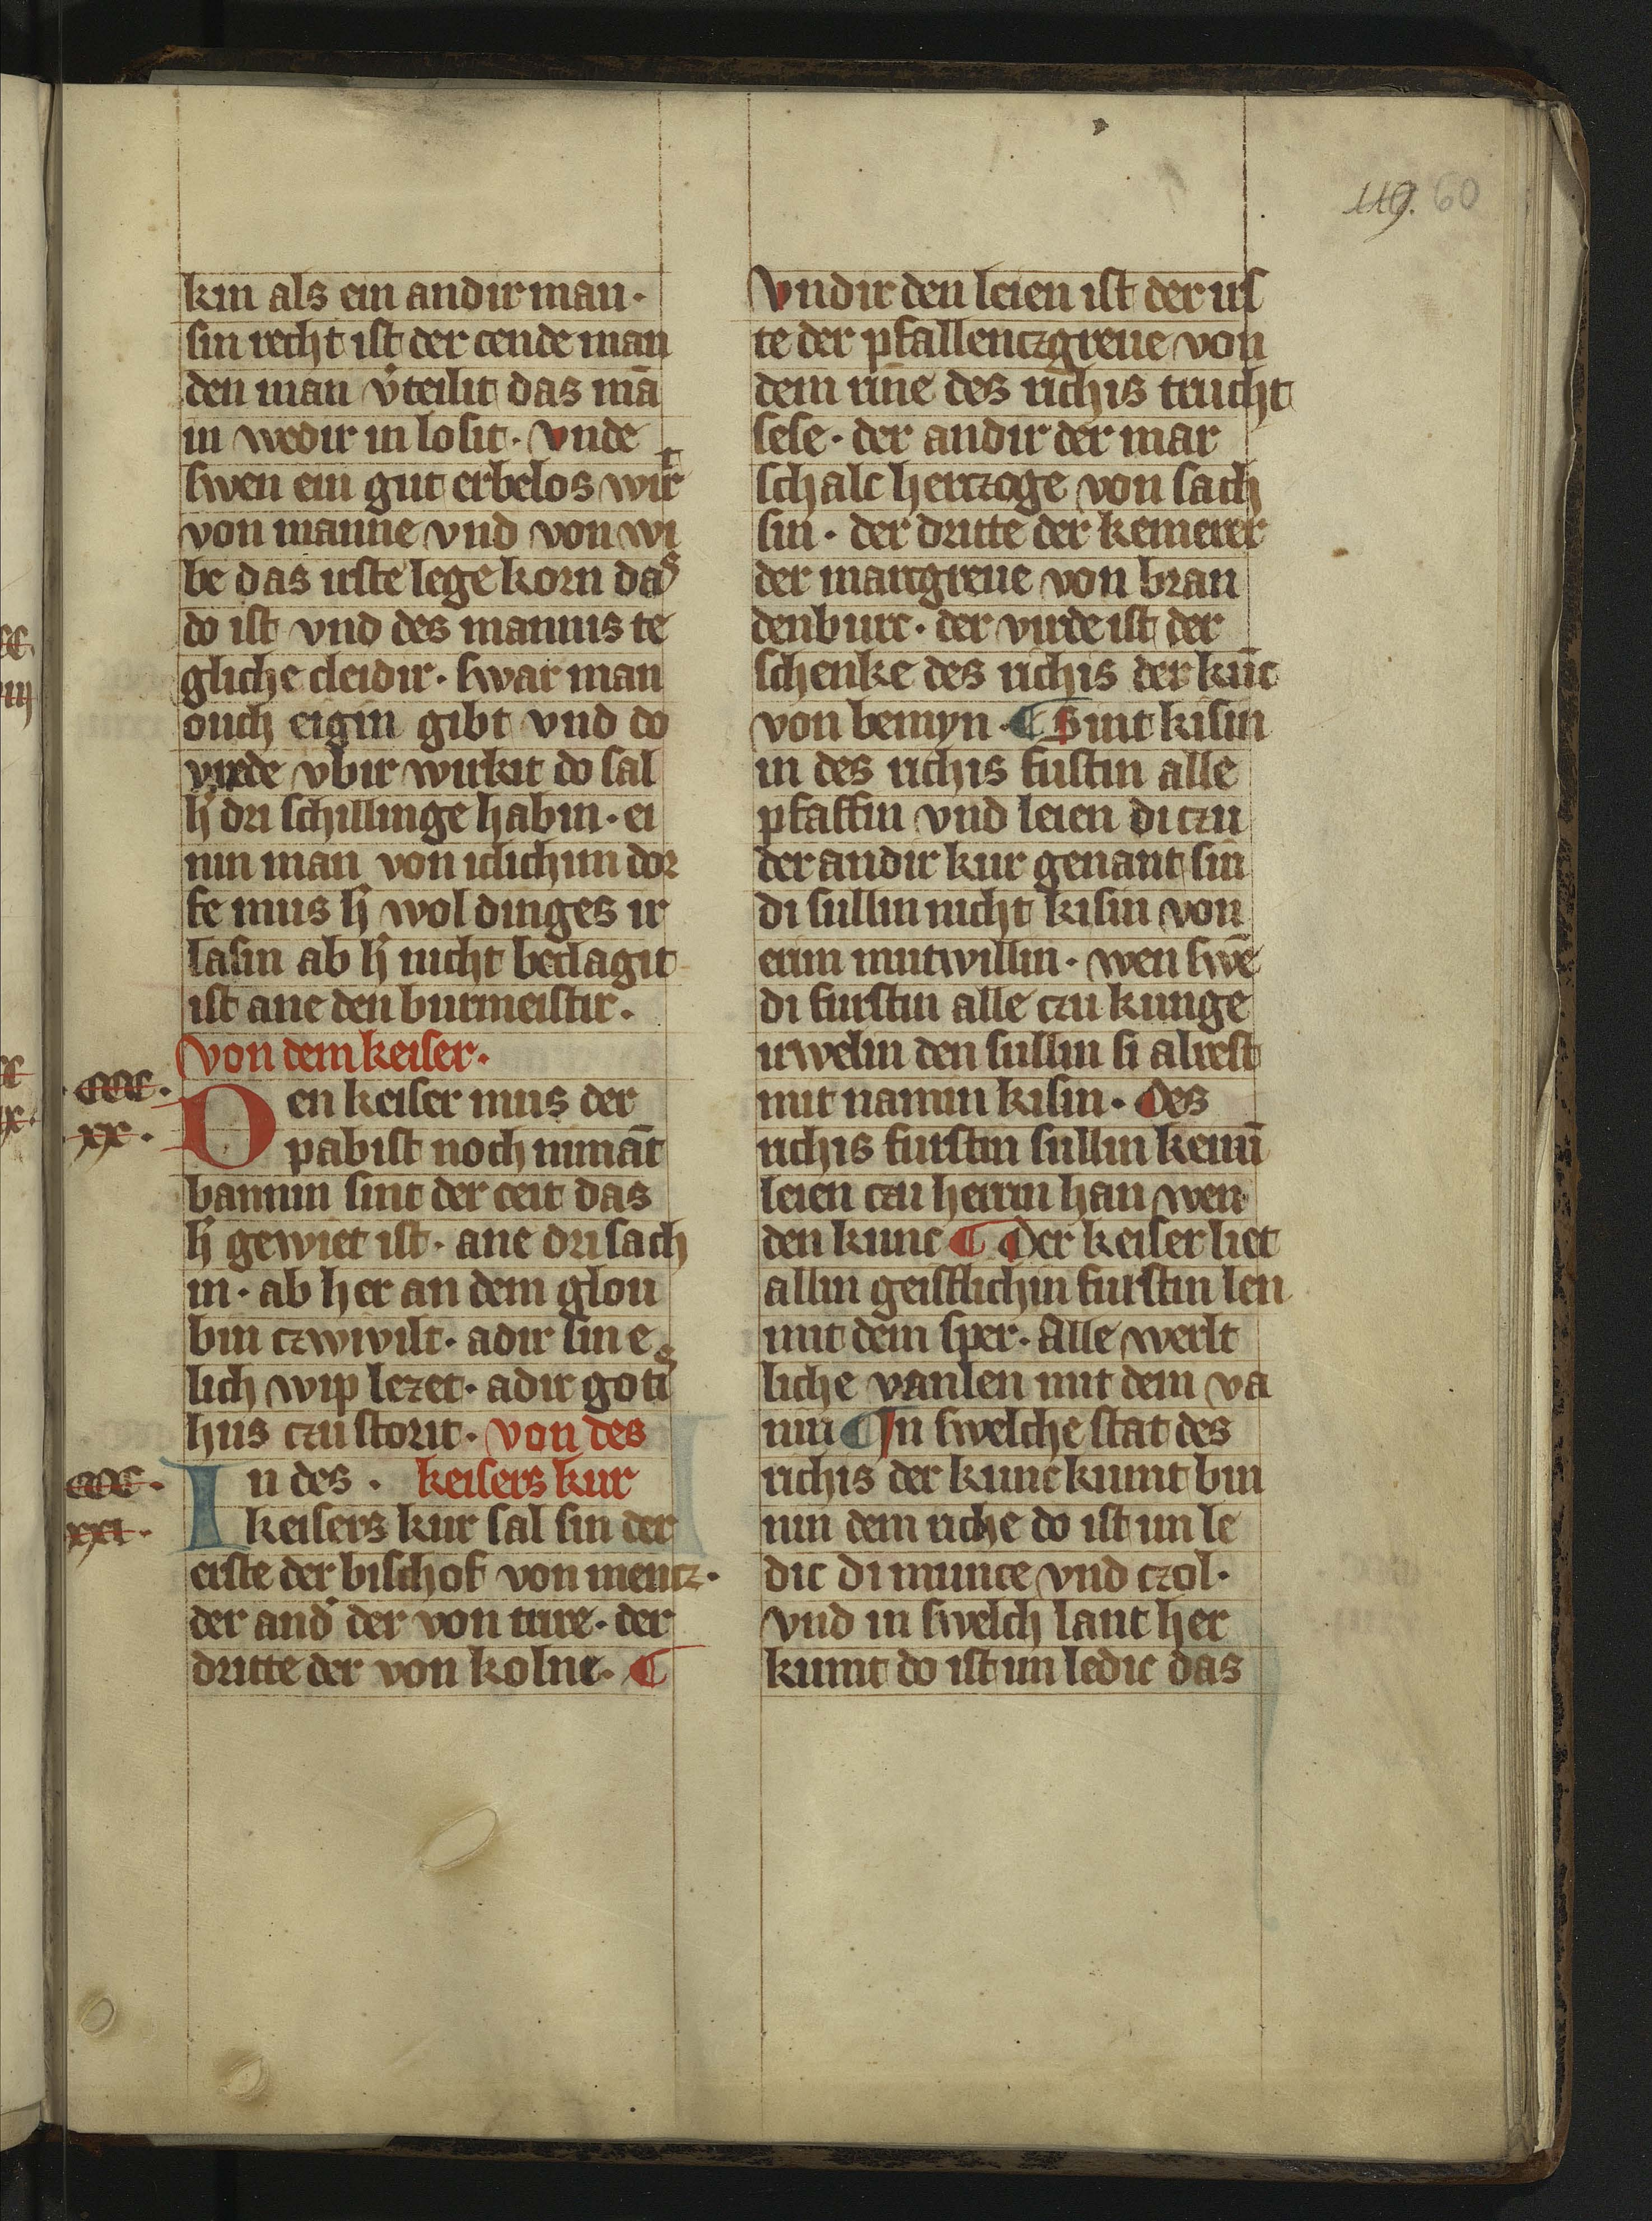 119. 60
kin als ein andir man·
sin recht ist der cende man
den man v̾teilit das mā
in wedir in losit· vnde
swen ein gut erbelos wirt
von manne vnd von wi
be das irste lege korn das
do ist vnd des mannis te
gliche cleidir· swar man
ouch eigin gibt vnd do
vrede vbir wirkit do sal
h̾ dri schillinge habin· ei
nin man von iclichim dor
fe mus h̾ wol dinges ir
lasin ab h̾ nicht beclagit
ist ane den burmeistir·
von dem keiser·
·ccc·
·xx·
Den keiser mus der
pabist noch nimāt
bannin sint der ceit das
h̾ gewiet ist· ane dri sach
in· ab her an dem glou
bin czwivilt· adir sin e
lich wip lezet· adir gotis
hus czu storit· von des
ccc·
xxi·
In des · keisers kur
keisers kur sal sin der
erste der bischof von mencz·
der and̾ der von trire· der
dritte der von kolne· ¶
vndir den leien ist der irs
te der pfallenczgreue von
dem rine des richis trucht
sese· der andir der mar
schalc herczoge von sach
sin· der dritte der kemerer
der marcgreue von bran
denburc· der virde ist der
schenke des richis der kūc
von bemyn· ¶ Sint kisin
in des richis fustin alle
pfaffin vnd leien di czu
der andir kur genant sin
di sullin nicht kisin von
erim mutwillin· wen swē
di furstin alle czu kunge
irwelin den sullin si alrest
mit namin kisin· des
richis furstin sullin keinī
leien czu herrin han wen
den kunc ¶ Der keiser liet
allin geistlichin furstin len
mit dem sper· Alle werlt
liche vanlen mit dem va
nin ¶ In swelche stat des
richis der kunc kumt bin
nin dem riche do ist im le
dic di munce vnd czol·
vnd in swelch lant her
kumt do ist im ledic das